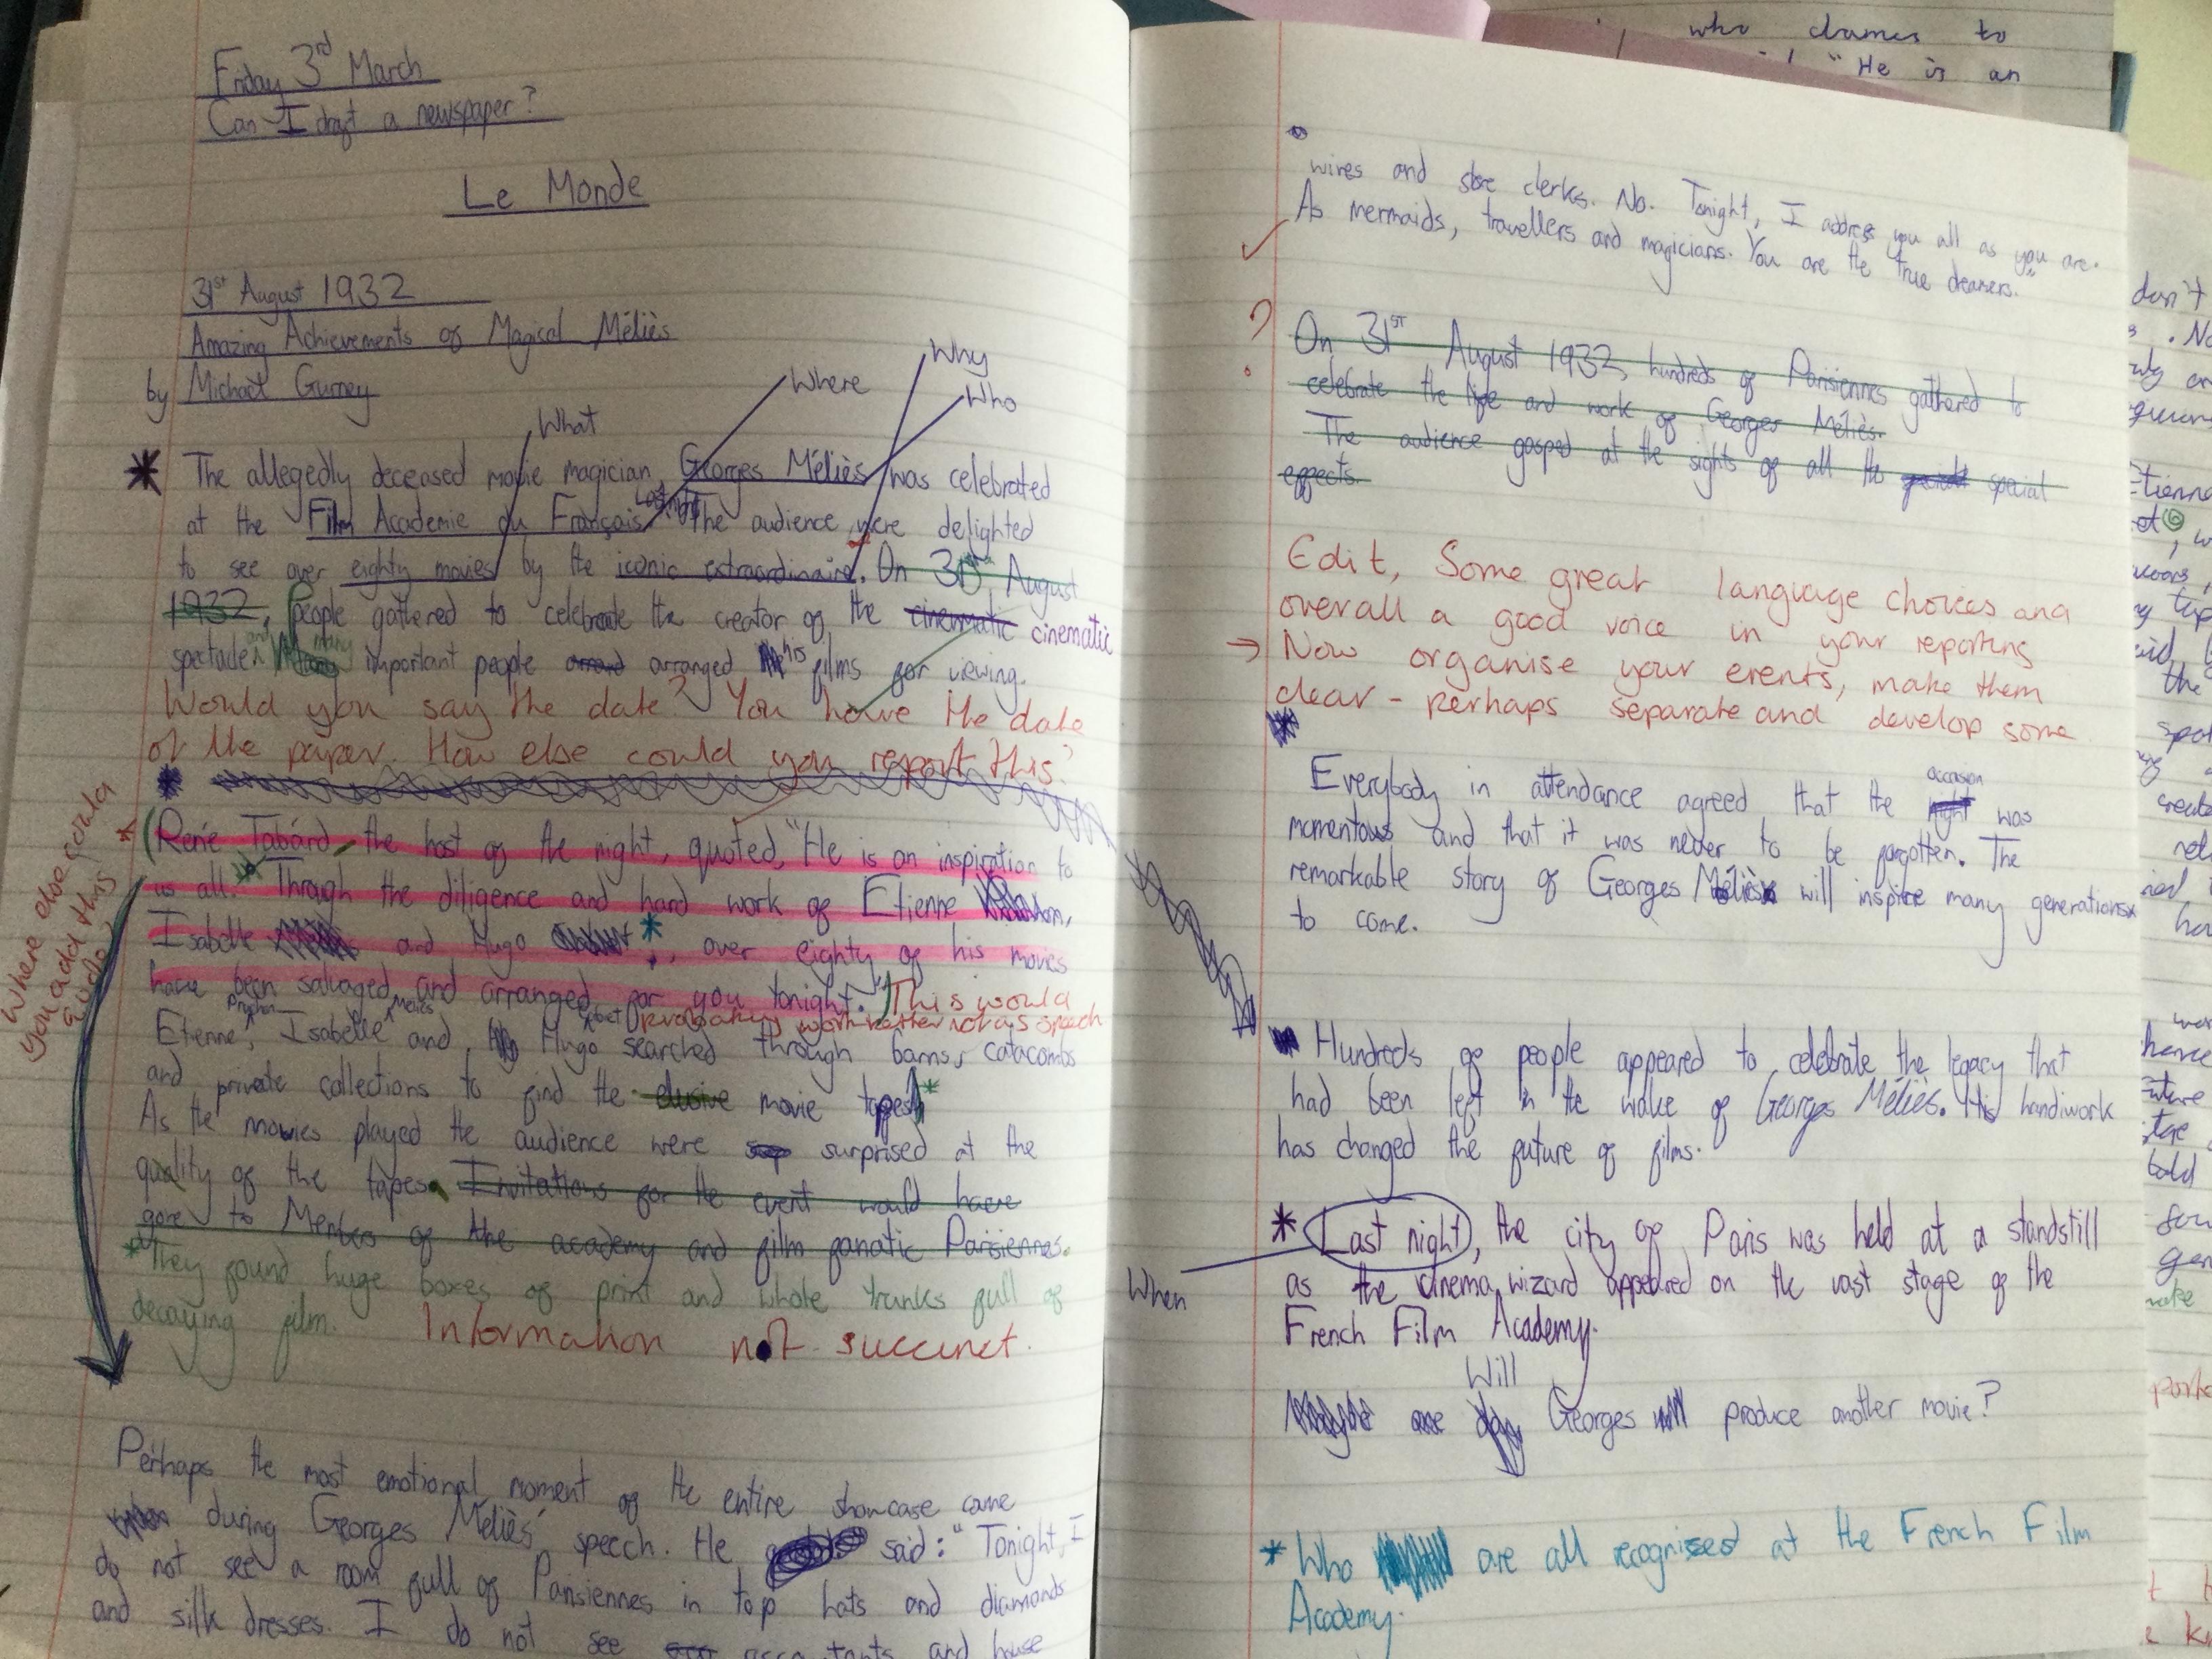 Friday 3rd March
Can I draft a newspaper?
Le Monde
31st August 1932
Amazing Achievements of Magical Méliès
by Michael Gurney
What
Where
Why
Who
The allegedly deceased movie magician, Georges Méliès was celebrated
at the Film Academie du Français Last night. The audience were delighted
to see over eighty movies by the iconic extraordinaire. On 31st August
1932, People gathered to celebrate the creator of the cinematic cinematic
spectacle and many important people arranged his films for viewing.
Would you say the date? You have the date
of the paper. How else could you report this?
Where else could
you add this
(René Tabárd, the host of the night, quoted, "He is an inspiration to
us all." Through the diligence and hard work of Etienne
Isabelle and Hugo *, over eighty of his movies
have been salvaged and arranged for you tonight.") This would
probably work better not as speech
Etienne, Isabelle Méliès and Hugo searched through barns, catacombs
and private collections to find the elusive movie tapes *
As the movies played the audience were surprised at the
quality of the tapes. Invitations for the event would have
gone to Members of the academy and film fanatic Parisiennes.
*They found huge boxes of print and whole trunks full of
decaying film. Information not succinct.
Perhaps the most emotional moment of the entire showcase came
when during Georges Méliès' speech. He said: "Tonight, I
do not see a room full of Parisiennes in top hats and diamonds
and silk dresses. I do not see accountants and house
wires and store clerks. No. Tonight, I address you all as you are.
As mermaids, travellers and magicians. You are the true dreamers."
?
On 31ST August 1932, hundreds of Parisiennes gathered to
celebrate the life and work of Georges Méliès.
The audience gasped at the sights of all the special
effects.
Edit, Some great language choices and
overall a good voice in your reporting
→ Now organise your events, make them
clear - perhaps separate and develop some
Everybody in attendance agreed that the night occasion was
momentous and that it was never to be forgotten. The
remarkable story of Georges Méliès will inspire many generations
to come.
Hundreds of people appeared to celebrate the legacy that
had been left in the wake of Georges Méliès. His handiwork
has changed the future of films.
* Last night, the city of Paris was held at a standstill
as the cinema wizard appeared on the vast stage of the
French Film Academy.
When
Will
Georges produce another movie?
* Who are all recognised at the French Film
Academy.
who dames to
"He is an
don't